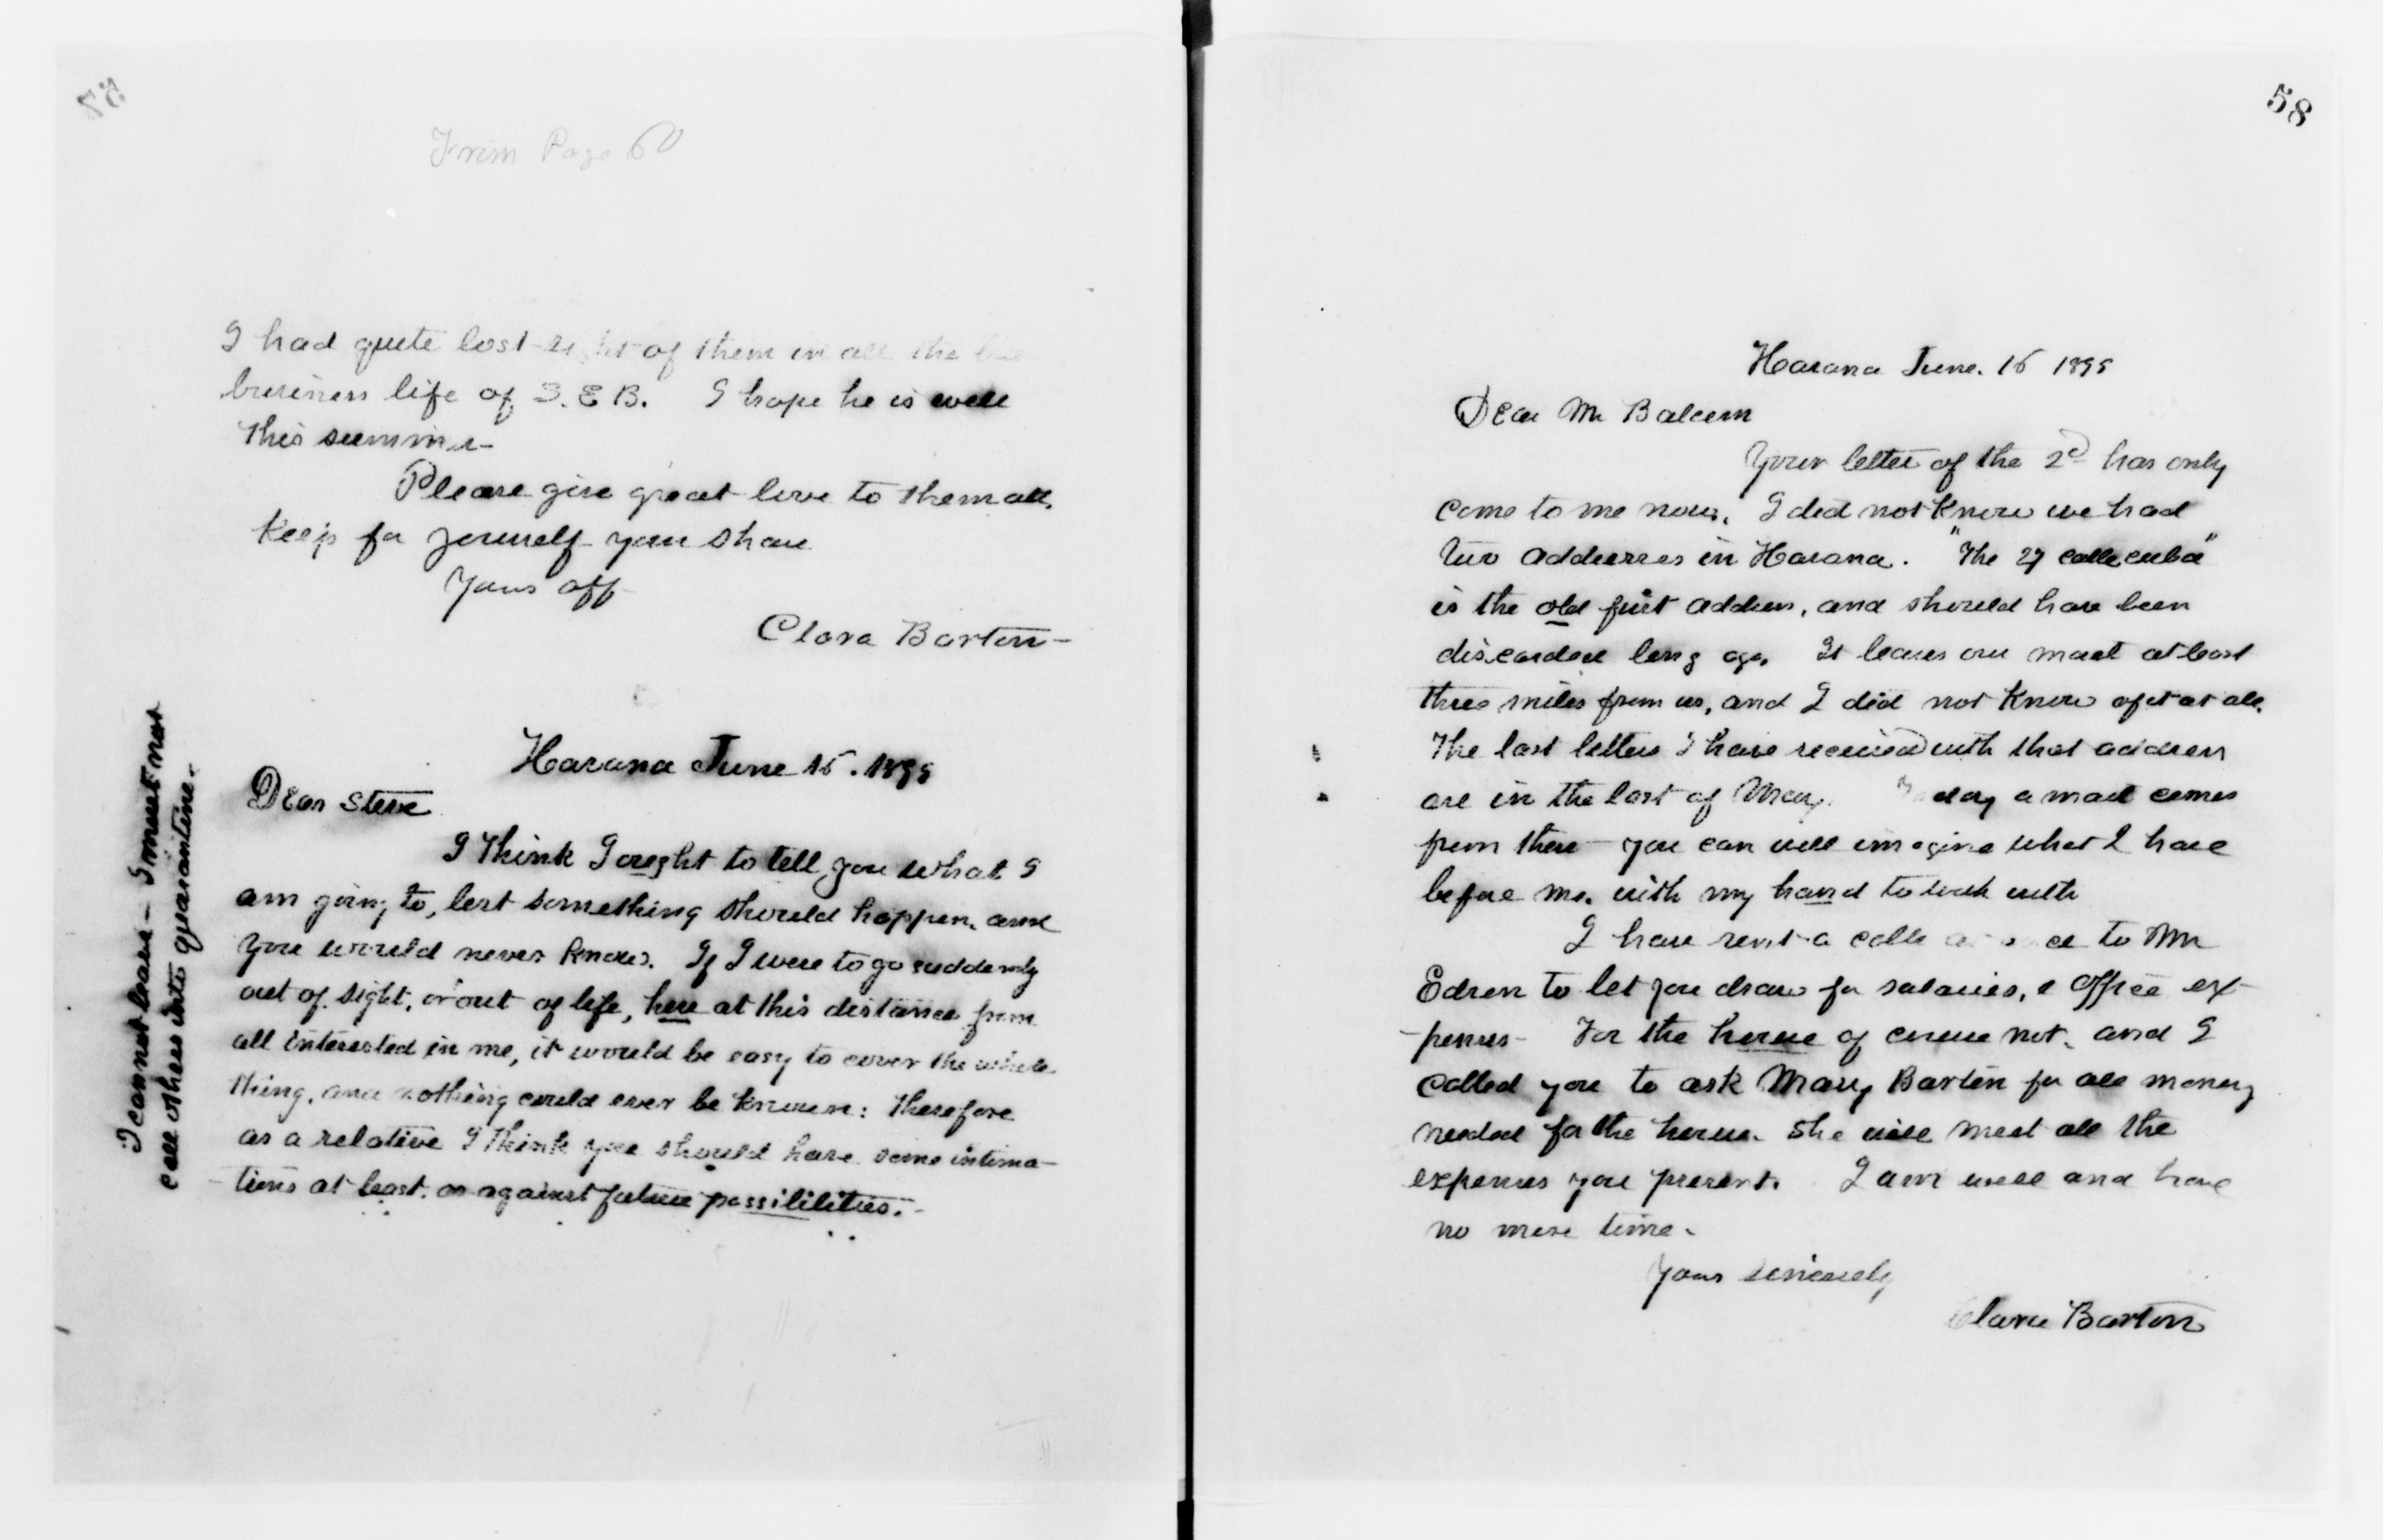 57
From Page 60
I had quite lost sight of them in all the
business life of S. E B. I hope he is well
this summer
Please give great love to them all.
Keep for yourself your share
Yours aff
Clara Barton
Havana June 15. 1899
Dear Steve
I think I ought to tell you what I
am going to, lest something should happen, and
you would never know. If I were to go suddenly
out of sight, or out of life, here at this distance from
all interested in me, it would be easy to cover the whole
thing, and nothing could ever be known: therefore
as a relative I think you should have some intima-
tions at least. as against future possibilities.
I cannot leave - I must not
call others into quarantine.
58
Havana June. 15 1899
Dear Mr Balcom
Your letter of the 2d has only
come to me now. I did not know we had
two addresses in Havana. "The 27 calle cuba"
is the old first address, and should have been
discarded long ago. It leaves our mail at least
three miles from us, and I did not know of it at all.
The last letters I have received with that address
are in the last of May. Today a mail comes
from there you can well imagine what I have
before me. with my hand to work with
I have sent a cable to Mr
to let you draw for salaries, & office ex-
-penses - For the house of course not, and I
called you to ask Mary Barton for all money
needed for the house. She will meet all the
expenses you present. I am well and have
no more time.
Yours sincerely
Clara Barton